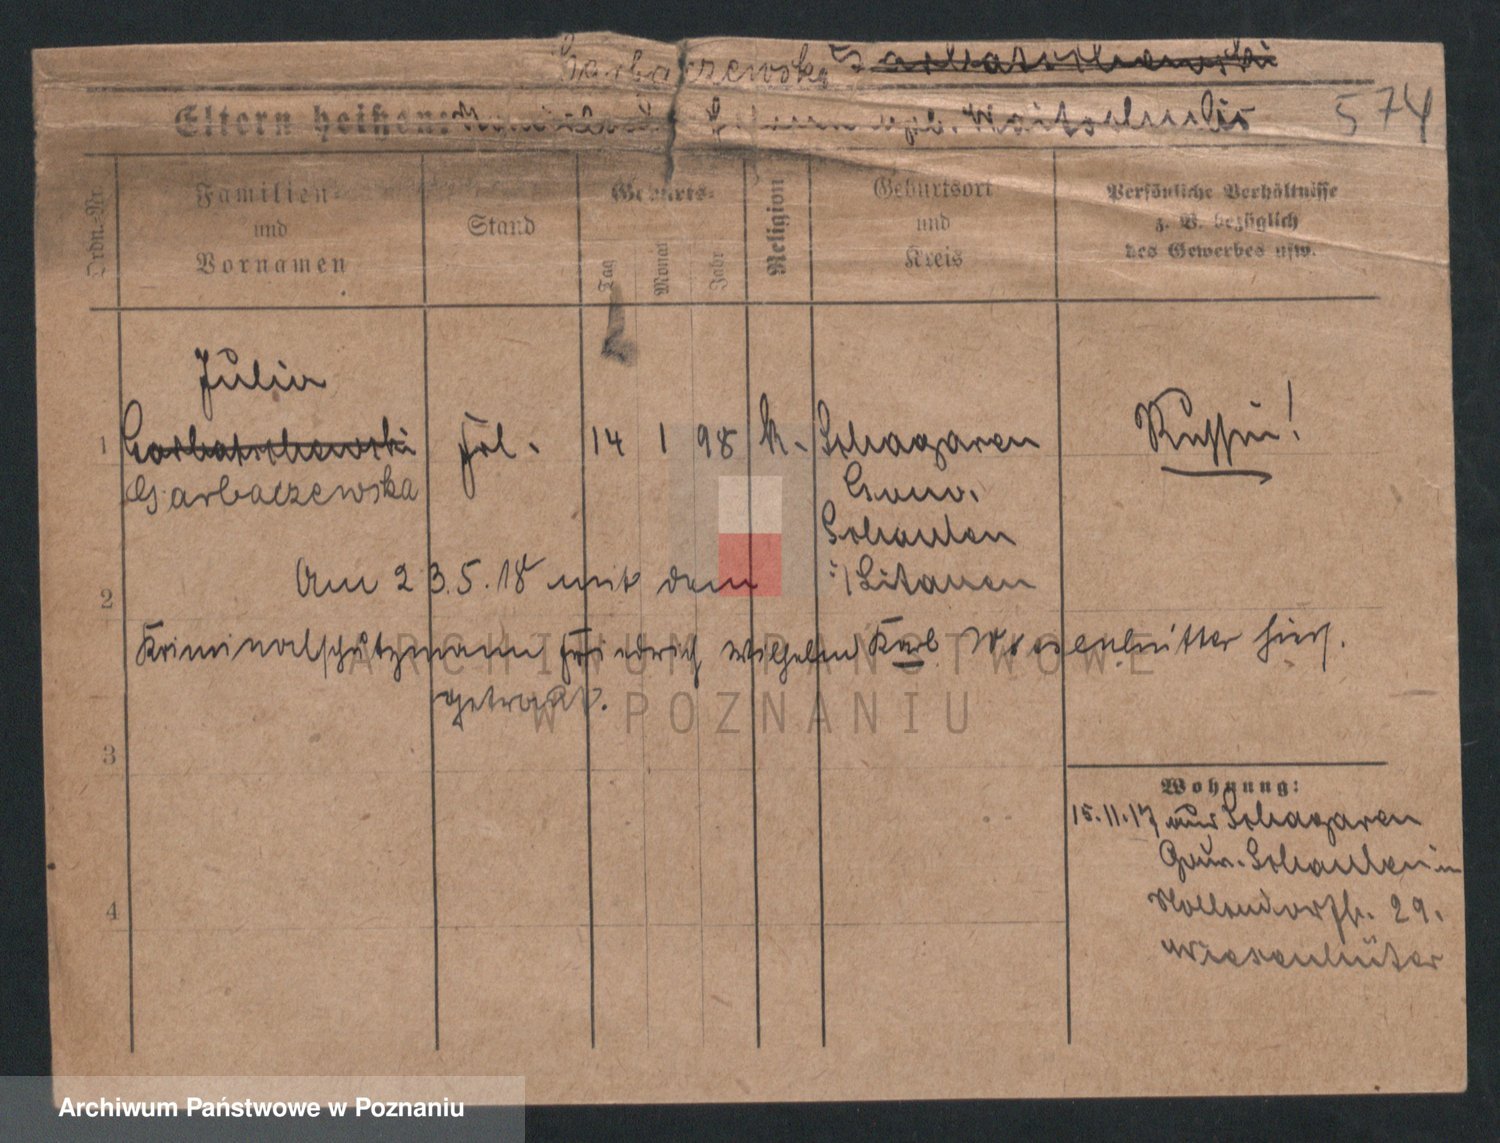 Garbaczewska Garbatschewski
Eltern heißen: geb. Waitschulis 574
Ordn.-Nr.
Familien-
und
Vornamen
Stand
Geburts-
Tag
Monat
Jahr
Religion
Geburtsort
und
Kreis
Persönliche Verhältnisse
z. B. bezüglich
des Gewerbes usw.
Julia
1 Garbatschewski Frl. 14 1 98 k. Schagaren Russin!
Garbaczewska Gouv.
Schaulen
Am 23.5.18 mit dem :/Litauen
2
Kriminalschutzmann Friedrich Wilhelm Karl Wiesenhütter hier
getraut.
3
4
Wohnung:
15.11.17 aus Schagaren
Gouv. Schaulen in
Hollendorfstr. 29.
Wiesenhüter
ARCHIWUM PAŃSTWOWE
W POZNANIU
Archiwum Państwowe w Poznaniu